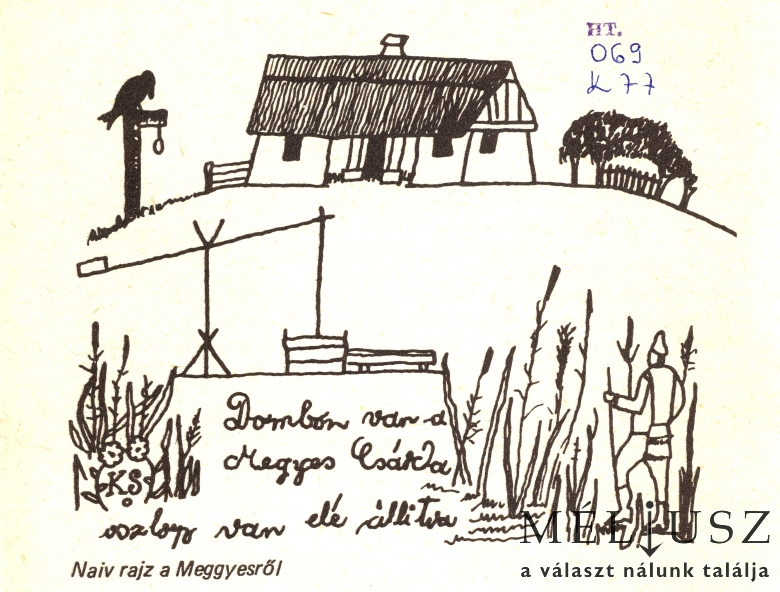 HT.
069
K 77
Dombon van a
Megyes Csárda
KS
oszlop van elé állitva
Naiv rajz a Meggyesről
MELIUSZ
a választ nálunk találja